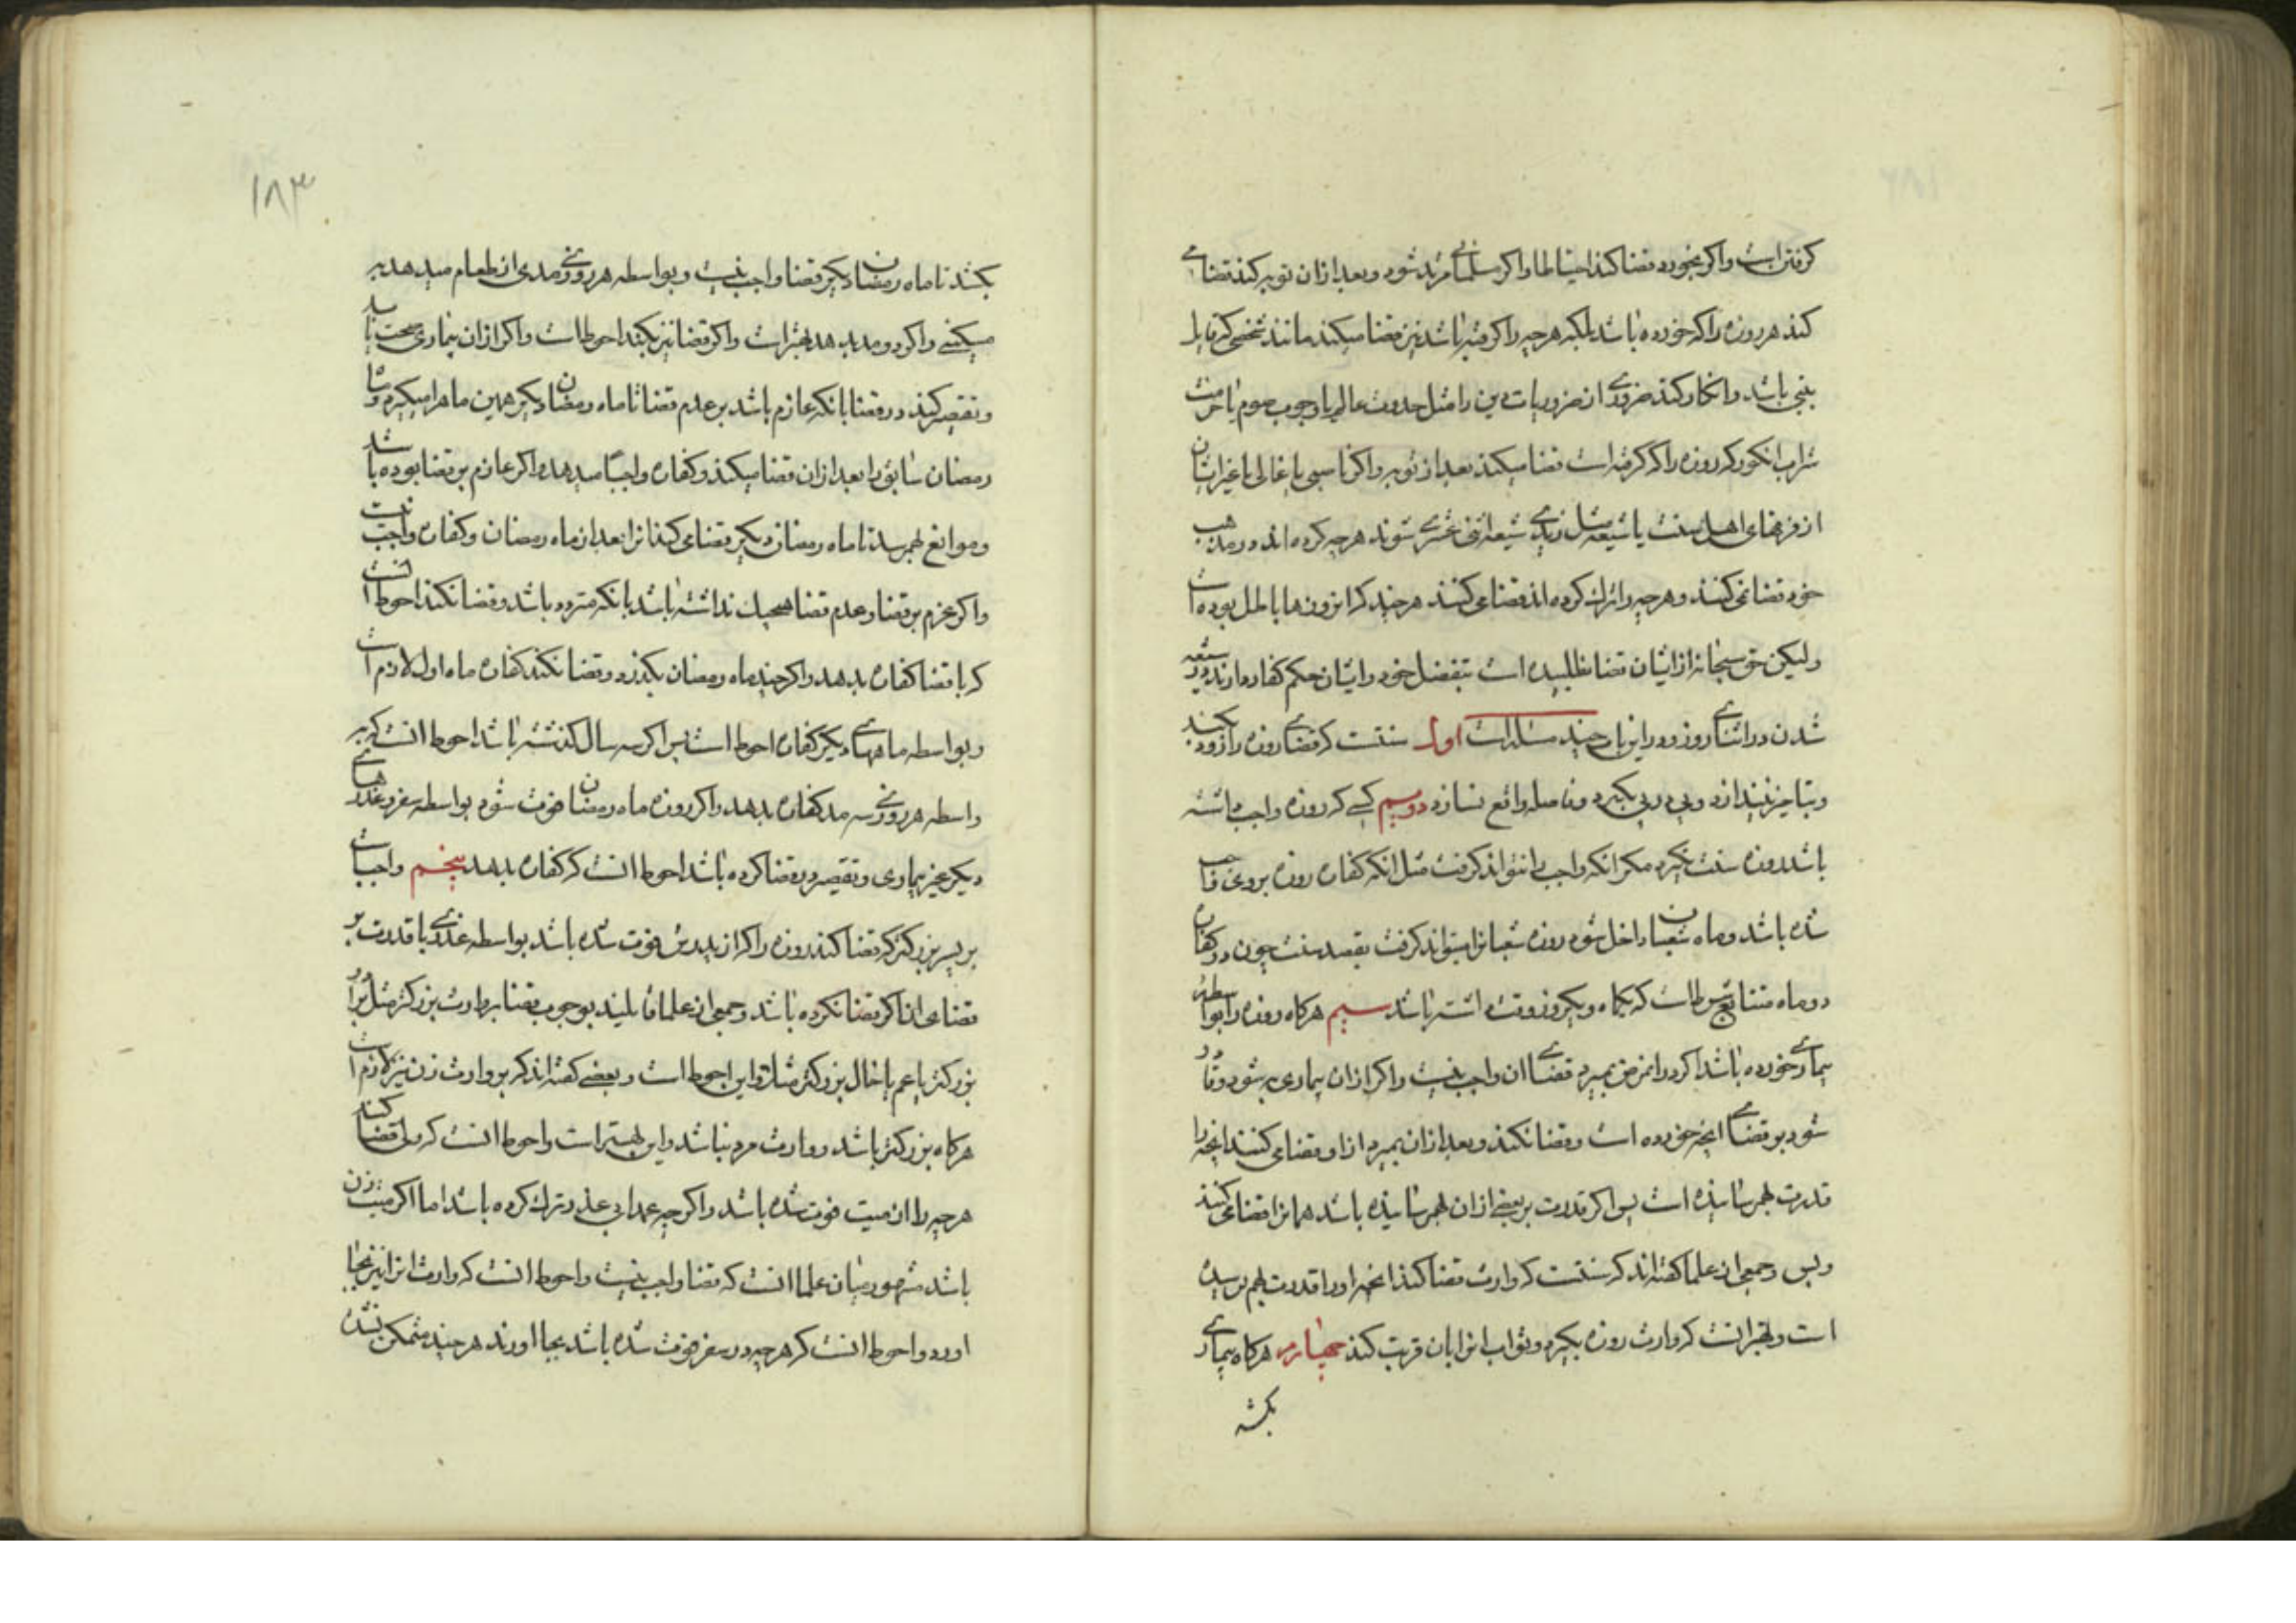 کرفتن است واکر بخورد قضا کند احتیاطا واکر مسلمانی مرتد شود و بعد ازان توبه کند قضای
کند هر روزه را که خورده باشد بلکه هرچه را کرفته باشد نیز قضا میکند مانند شخصی که قایل
بنبی باشد وانکار کند ضروری از ضروریات دین را مثل حدوث عالم یا وجوب صوم یا حرمت
شراب انکور که روزه را که کرفته است قضا میکند بعد از توبه واکر ناصبی یا غالی یا غیر ایشان
از فرقهای اهل سنت یا شیعه مثل زیدی شیعه اثنی عشری شوند هرچه کرده اند در مذهب
خود قضا نمی کنند وهرچه را ترک کرده اند قضا می کنند هرچند که این روزها باطل بوده است
ولیکن حق سبحانه از ایشان قضا نطلبیده است بتفضل خود وایشان حکم کفار دارند در شیعه
شدن در اثنای روز ودر این باب چند مسئله است اول سنتست که قضای روزه را زود بکند
وبتاخیر نیندازد وپی در پی بکیرد وفاصله واقع نسازد دویم کسی که روزه واجب داشته
باشد روزه سنت نکیرد مکر انکه واجب را نتواند کرفت مثل انکه کفاره روزه بر وی واجب
شده باشد وماه شعبان داخل شود روزه شعبانرا میتواند کرفت بقصد سنت چون در کفاره
دو ماه متتابع شرطاست که یکماه ویکروز وقت داشته باشد سیم هرکاه روزه را بواسطه
بیماری خورده باشد اکر در انمرض بمیرد قضای ان واجب نیست واکر ازان بیماری به شود وقادر
شود بر قضای انچه خورده است وقضا نکند وبعد ازان بمیرد از او قضا می کنند انچه را
قدرت بهم رسانیده است پس اکر قدرت بر بعضی ازان بهم رسانیده باشد همانرا قضا می کنند
وبس وجمعی از علما کفته اند که سنتست که وارث قضا کند انچه او را قدرت بهم نرسیده
است وبهتر انست که وارث روزه بکیرد وثواب انرا بان قربت کند چهارم هرکاه بیماری
بکشد
۱۸۳
بکشد تا ماه رمضان دیکر قضا واجب نیست وبواسطه هر روزی مدی از طعام میدهد به
مسکینی واکر دو مد بدهد بهتر است واکر قضا نیز بکند احوطاست واکر ازان بیماری صحت یابد
وتقصیر کند در قضا بانکه عازم باشد بر عدم قضا تا ماه رمضان دیکر همین ماه را میکیرد وماه
رمضان سابق را بعد ازان قضا میکند وکفاره واجبا میدهد واکر عازم بر قضا بوده باشد
وموانع بهم رسد تا ماه رمضان دیکر قضا می کند انرا بعد از ماه رمضان وکفاره واجب نیست
واکر عزم بر قضا وعدم قضا هیچیک نداشته باشد یا نکه متردد باشد وقضا نکند احوط انست
که با قضا کفاره بدهد واکر چند ماه رمضان بکذرد وقضا نکند کفاره ماه اول لازم است
وبواسطه ماههای دیکر کفاره احوط است پس اکر سه سال کذشته باشد احوط انست که به
واسطه هر روزی سه مد کفاره بدهد واکر روزه ماه رمضان فوت شود بواسطه سفر وعذرهای
دیکر غیر بیماری وتقصیر در قضا کرده باشد احوط انست که کفاره بدهد پنجم واجبست
بر پسر بزرکتر که قضا کند روزه را که از پدرش فوت شده باشد بواسطه عذری با قدرت بر
قضای ان اکر قضا نکرده باشد وجمعی از علما قایلند بوجوب قضا بر وارث بزرکتر مثل برادر
بزرکتر یا عم یا خال بزرکتر مثلا واین احوط است وبعضی کفته اند که بر وارث زن نیز لازم است
هرکاه بزرکتر باشد و وارث مرد نباشد واین بهتر است واحوط انست که ولی قضا کند
هرچه را از میت فوت شده باشد واکرچه عمدا بی عذر ترک کرده باشد اما اکر میت زن
باشد مشهور میان علما انست که قضا واجب نیست واحوط انست که وارث انرا نیز بجا
اورد واحوط انست که هرچه در سفر فوت شده باشد بجا اورند هرچند متمکن نشده